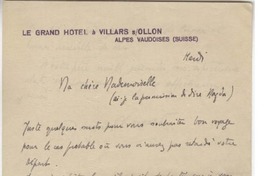 LE GRAND HÔTEL à VILLARS s/OLLON
ALPES VAUDOISES (SUISSE)
Mardi
Ma chère Mademoiselle
(ai-je la permission de dire Magda)
Juste quelques mots pour vous souhaiter bon voyage
pour le cas probable où vous n'auriez pas retardé votre
départ.